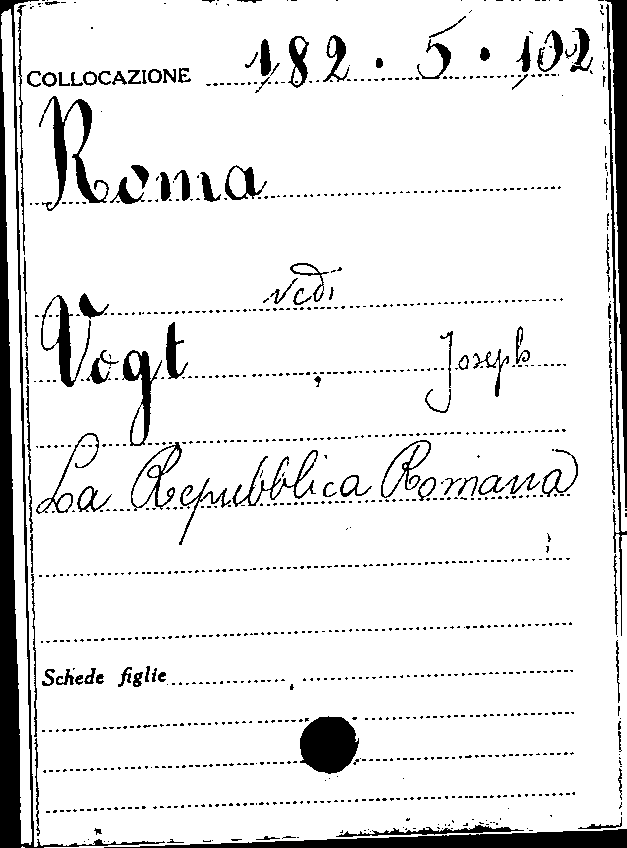 COLLOCAZIONE 182 . 5 . 102
Roma
vedi
Vogt, Joseph
La Repubblica Romana
Schede figlie